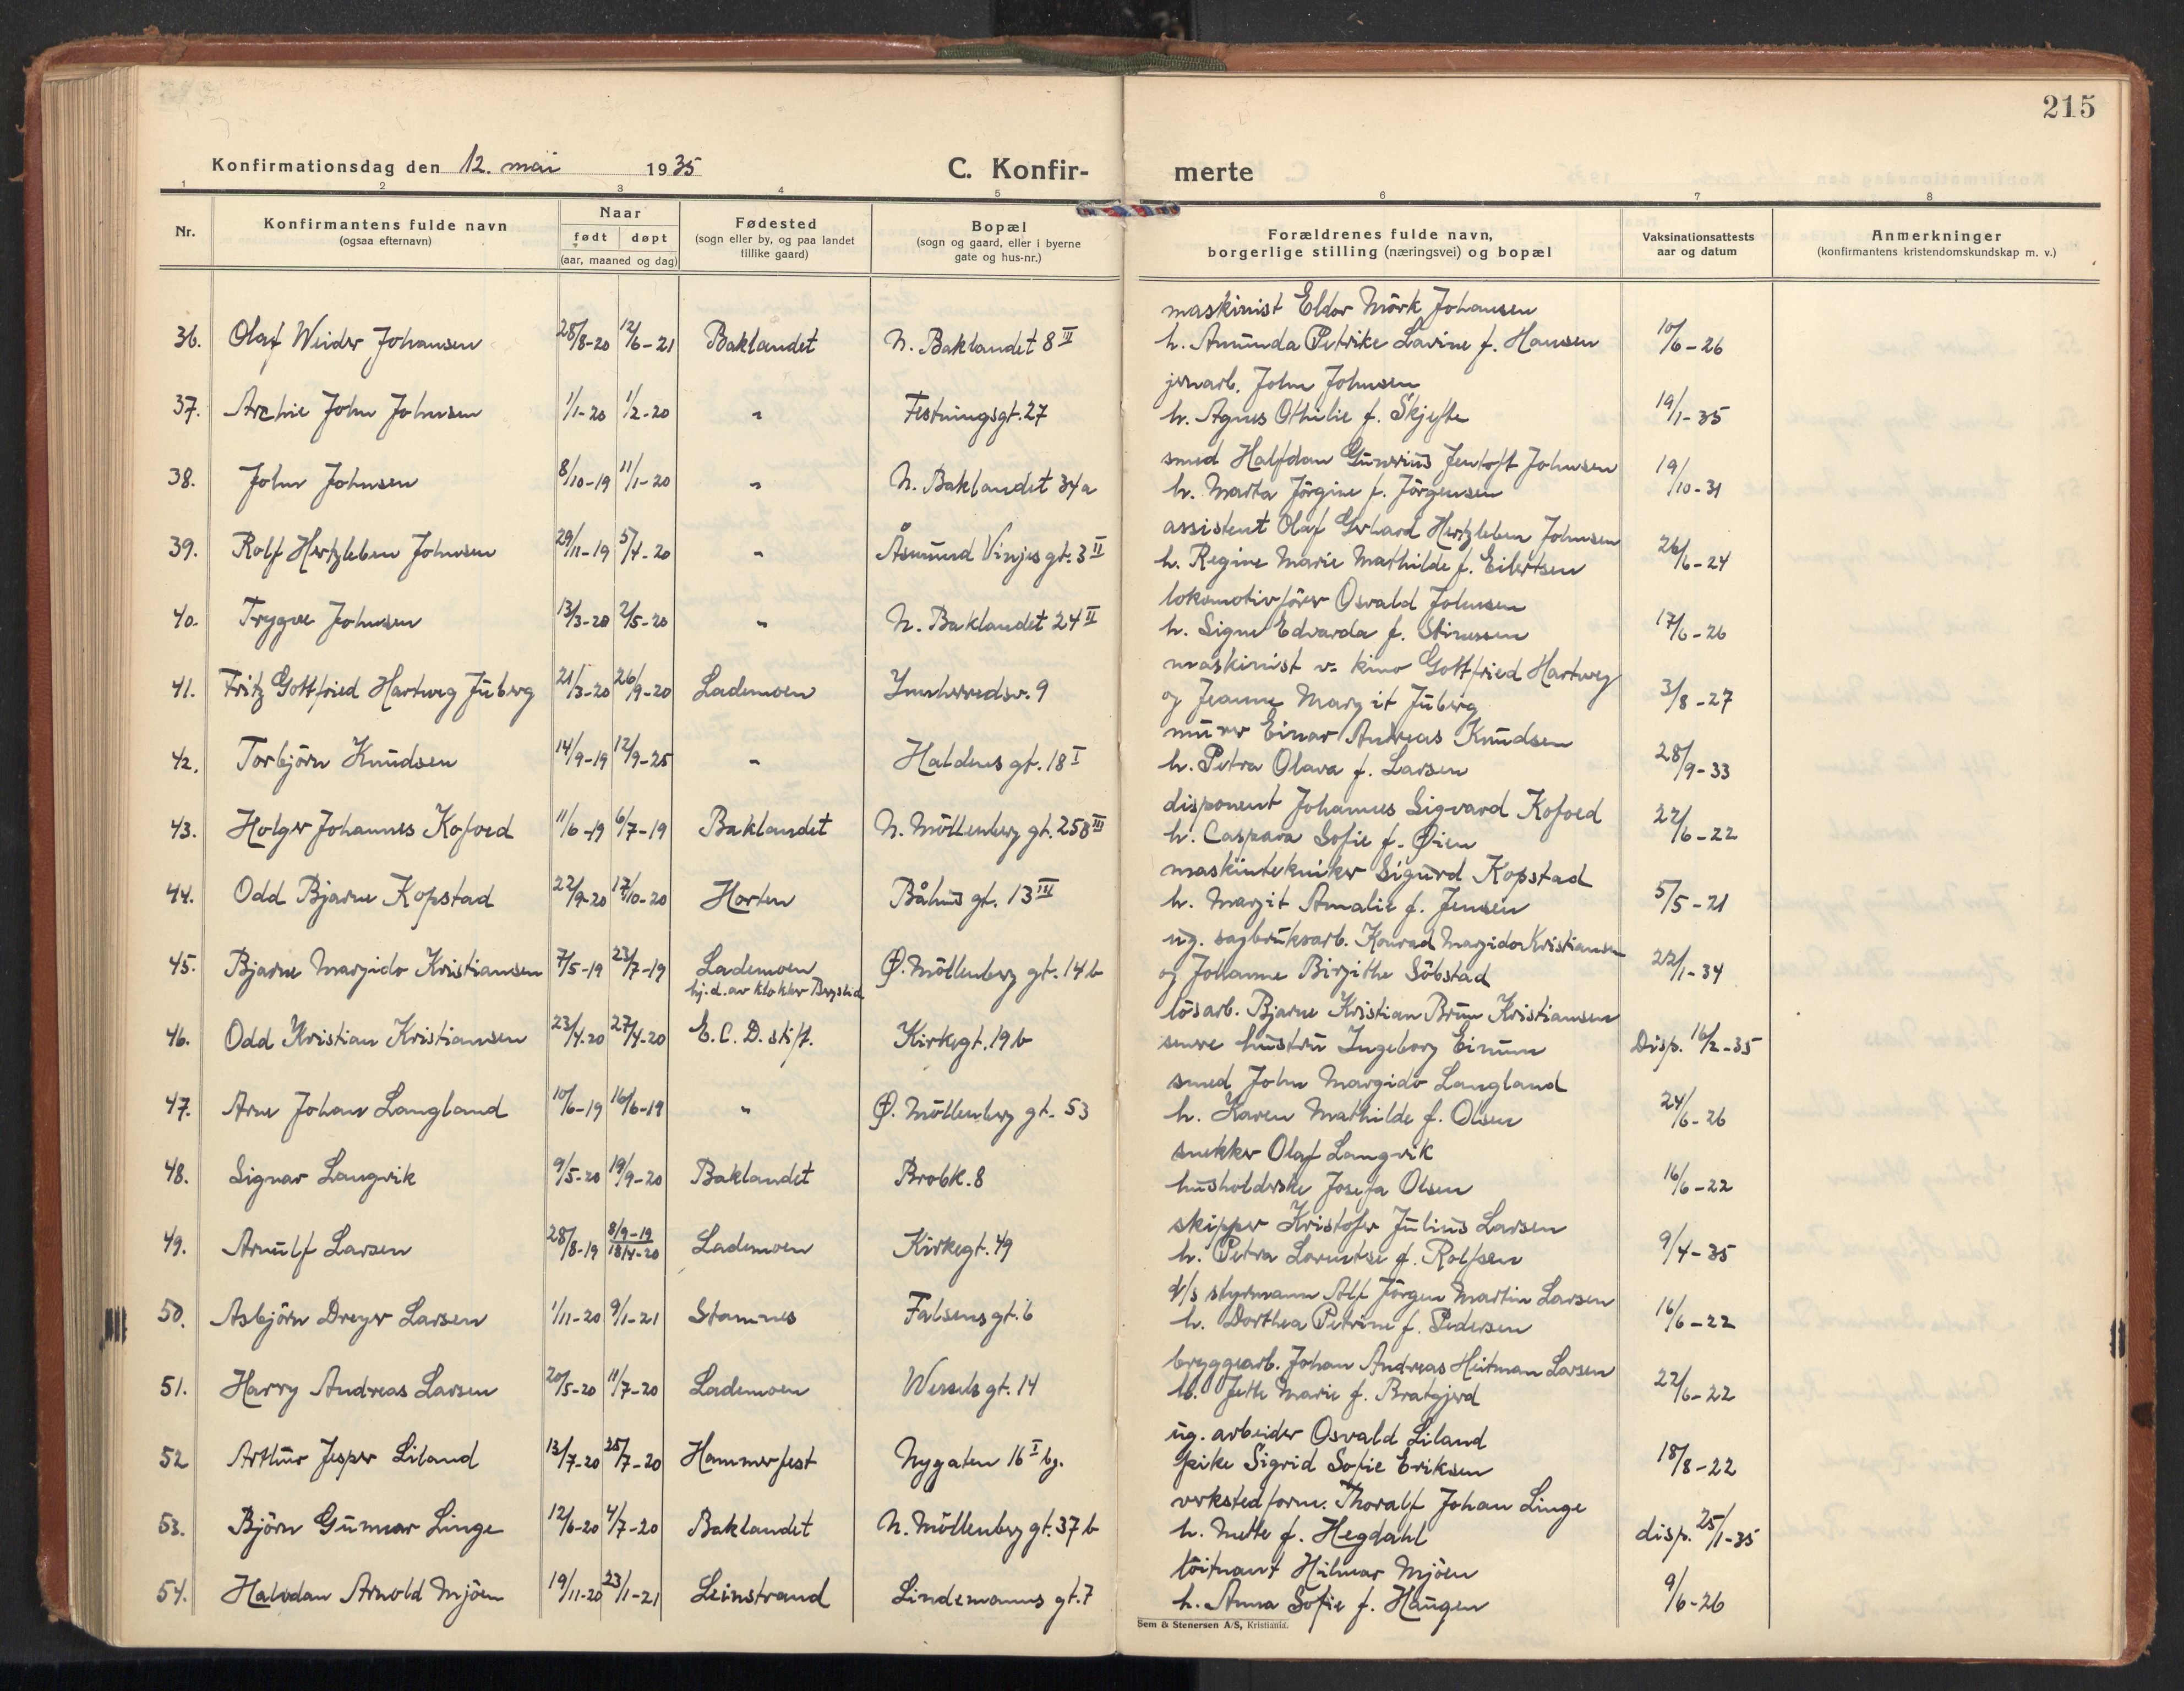 215
Konfirmationsdag den 12. mai 1935
C. Konfir-
merte
1 2 3 4 5 6 7 8
Nr.
Konfirmantens fulde navn
(ogsaa efternavn)
Naar
født døpt
(aar, maaned og dag)
Fødested
(sogn eller by, og paa landet
tillike gaard)
Bopæl
(sogn og gaard, eller i byerne
gate og hus-nr.)
Forældrenes fulde navn,
borgerlige stilling (næringsvei) og bopæl
Vaksinationsattests
aar og datum
Anmerkninger
(konfirmantens kristendomskundskap m. v.)
maskinist Eldor Mörk Johansen
36. Olaf Weider Johansen 28/8-20 12/6-21 Baklandet N. Baklandet 8 III h. Amunda Petrike Lavine f. Hansen 10/6-26
jernarb. John Johnsen
37. Archie John Johnsen 1/1-20 1/2-20 " Festningsgt. 27 h. Agnes Othilie f. Skjefte 19/1-35
smed Halfdan Gunerius Jentoft Johnsen
38. John Johnsen 8/10-19 11/1-20 " N. Baklandet 34a h. Marta Jörgine f. Jörgensen 19/10-31
assistent Olaf Gerhard Hertzleben Johnsen
39. Rolf Hertzleben Johnsen 29/11-19 5/4-20 " Åsmund Vinjes gt. 3 II h. Regine Marie Mathilde f. Eilertsen 26/6-24
lokomotivförer Osvald Johnsen
40. Trygve Johnsen 13/3-20 2/5-20 " N. Baklandet 24 II h. Signe Edvarda f. Stinessen 17/6-26
maskinist v. kino Gottfried Hartweg
41. Fritz Gottfried Hartweg Juberg 21/3-20 26/9-20 Lademoen Innherredsv. 9 og Jeanne Margit Juberg 3/8-27
murer Einar Andreas Knudsen
42. Torbjörn Knudsen 14/9-19 12/9-25 " Haldens gt. 18 I h. Petra Olava f. Larsen 28/9-33
disponent Johannes Sigvard Kofoed
43. Holger Johannes Kofoed 11/6-19 6/7-19 Baklandet N. Möllenberg gt. 258 III h. Caspara Sofie f. Øien 22/6-22
maskintekniker Sigurd Kopstad
44. Odd Bjarne Kopstad 22/9-20 17/10-20 Horten Båhus gt. 13 III h. Margit Amalie f. Jensen 5/5-21
ug. sagbruksarb. Konrad Margido Kristiansen
45. Bjarne Margido Kristiansen 7/5-19 23/7-19 Lademoen Ø. Möllenberg gt. 14 b og Johanne Birgithe Söbstad 22/1-34
hj. d. av klokker
lösarb. Bjarne Kristian Brun Kristiansen
46. Odd Kristian Kristiansen 23/4-20 27/4-20 E. C. D. stift. Kirkegt. 19 b senere hustru Ingeborg Einum Disp. 16/2-35
smed John Margido Langland
47. Arne Johan Langland 10/6-19 16/6-19 " Ø. Möllenberg gt. 53 h. Karen Mathilde f. Olsen 24/6-26
snekker Olaf Langvik
48. Signar Langvik 9/5-20 19/9-20 Baklandet Brobk. 8 husholderske Josefa Olsen 16/6-22
skipper Kristofer Julius Larsen
49. Arnulf Larsen 28/8-19 8/9-19 18/4-20 Lademoen Kirkegt. 49 h. Petra Lorentse f. Rolfsen 9/4-35
d/s styrmann Alf Jörgen Martin Larsen
50. Asbjörn Dreyer Larsen 1/11-20 9/1-21 Stamnes Falsens gt. 6 h. Dorthea Petrine f. Pedersen 16/6-22
bryggearb. Johan Andreas Heitman Larsen
51. Harry Andreas Larsen 20/5-20 11/7-20 Lademoen Wessels gt. 14 h. Jette Marie f. Bratgjerd 22/6-22
ug. arbeider Osvald Liland
52 Arthur Jesper Liland 13/7-20 25/7-20 Hammerfest Nygaten 16 I bg. pike Sigrid Sofie Eriksen 18/8-22
verkstedform. Thoralf Johan Linge
53. Björn Gunnar Linge 12/6-20 4/7-20 Baklandet N. Möllenberg gt. 37 b h. Mette f. Hegdahl disp. 25/1-35
löitnant Hilmar Mjöen
54. Halvdan Arnold Mjöen 19/11-20 23/1-21 Leinstrand Lindemanns gt. 7 h. Anna Sofie f. Haugen 9/6-26
Sem & Stenersen A/S, Kristiania.